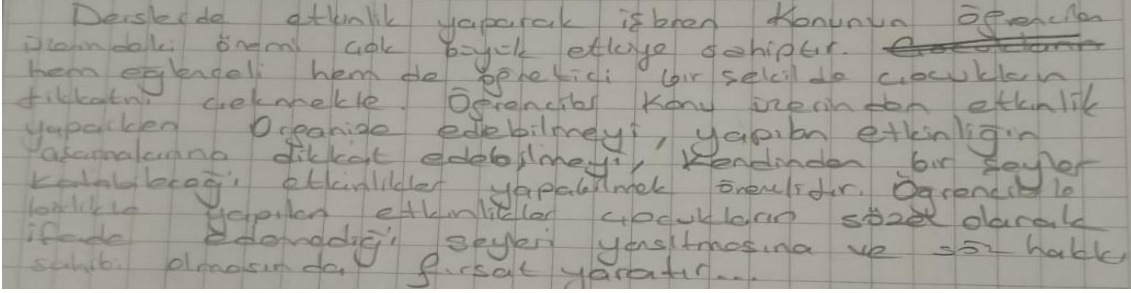 Derslerde etkinlik yaparak işlenen konunun öğrenciler
üzerindeki önemi çok büyük etkiye sahiptir.
hem eğlendeli hem de öğretici bir şekilde çocukların
dikkatni çekmekle. Öğrenciler konu üzerinden etkinlik
yaparken Organize edebilmeyi, yapılan etkinliğin
aşamalarına dikkat edebilmeyi, kendinden bir şeyler
katabileceği etkinlikler yapabilmek önemlidir. Öğrenciyle
birlikte yapılan etkinlikler çocukların sözel olarak
ifade edemediği şeyleri yansıtmasına ve söz hakkı
sahibi olmasında fırsat yaratır...